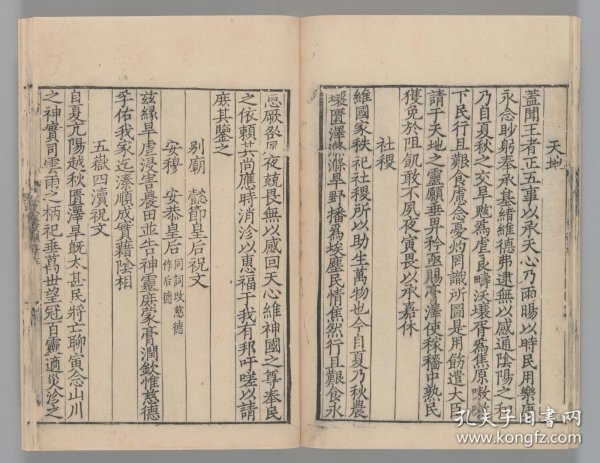 天地
蓋聞王者正五事以承天心乃雨暘以時民用樂康
永念眇躬奉承基緒維德弗逮無以感通陰陽之和
乃自夏秋之交旱魃為虐良疇沃壤胥為焦原嗷嗷
下民行且艱食慮念憂灼罔識所圖是用飭遣大臣
請于天地之靈願垂畀矜亟賜膏澤使稼穡中熟民
獲免於阻飢敢不夙夜寅畏以承嘉休
社稷
維國家秩祀社稷所以助生萬物也今自夏乃秋農
壤匱澤滌滌旱野播為埃塵民情焦然行且艱食永
厥咎夙夜兢畏無以感回天心維神國之尊奉民
之依頼其尚應時消沴以惠福于我有邦吁嗟以請
庶其鑒之
别廟 懿節皇后祝文
安穆 安恭皇后 同詞改慈德
作后德
兹緣旱虐浸害農田並告神靈庶蒙膏潤欽惟慈德
孚佑我家迄湊順成實藉陰相
五嶽四瀆祝文
自夏亢陽越秋匱澤旱既太甚民將亡聊寅念山川
之神實司雲雨之柄祀垂萬世望冠百靈適災沴之
孔夫子旧书网
www.kongfz.com